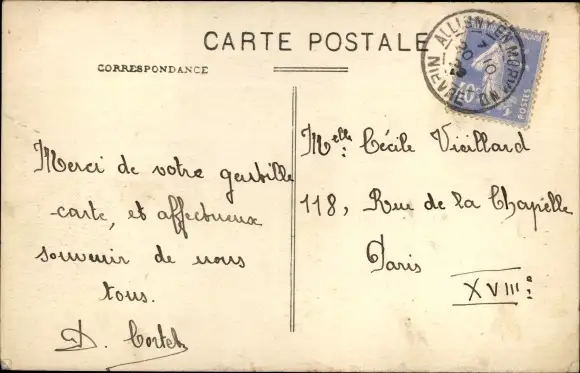 CARTE POSTALE
CORRESPONDANCE
ALLIGNY-EN-MORVAND
NIEVRE
POSTES
40
Merci de votre gentille
carte, et affectueux
souvenir de nous
tous.
D.
Melle: Cécile Vieillard
118, Rue de la Chapelle
Paris
XVIIIe